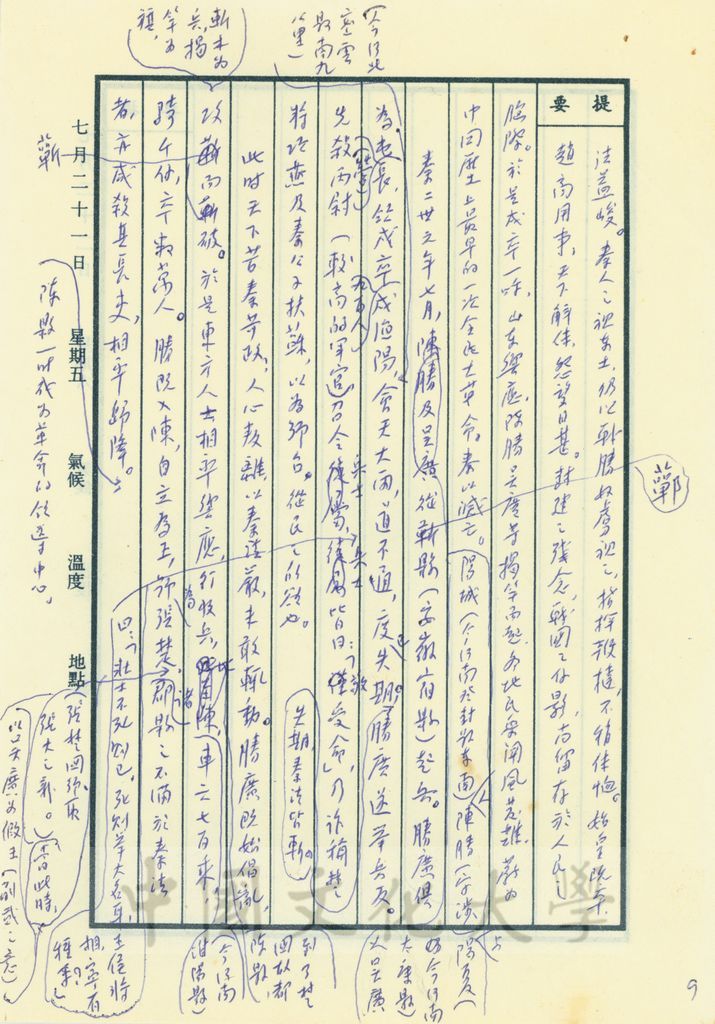 提要
法益峻。秦人之視東土，仍以戰勝奴虜視之，指揮鞭撻，不稍体恤。始皇既卒，
趙高用事，天下解体，怨望日甚。封建之殘念，戰國之餘影，尚留存於人民之
腦際。於是戍卒一呼，山東響應，陳勝吳廣等揭竿而起，各地民眾聞風芰
中國歷史上最早的一次全民大革命。秦以滅亡。
陽城（今河南登封縣東南）
陳勝（字涉
陽夏人
（今河南
太康縣）
人吳廣
秦二世元年七月，陳勝及吳廣從蘄縣（安徽宿縣）起兵。勝廣俱
為屯長，
戍卒戍漁陽，會天大雨，道不通，度已失期，勝廣遂舉兵反。
（今河北
密雲
縣南九
里）
九百人
先殺兩尉（較高的軍官）召令徒屬，徒屬皆曰：「敬受命」乃詐稱楚
兵士
兵士
失期，秦法皆斬。
將項燕及秦公子扶蘇，以為號召。從民之所欲也。
此時天下苦秦苛政，人心叛離，以秦法嚴，未敢輒動。勝廣既始倡亂，
攻蘄而蘄破。於是東方人士相率響應，行收兵，
陳，車六七百乘，
斬木為
兵，揭
竿為
旗，
蘄
蘄
到了楚
國故都
陳縣
（今河南
淮陽縣）
騎千餘，卒數萬人。勝既入陳，自立為王，號張楚。諸郡縣之不滿於秦法
者，亦咸殺其長吏，相率歸降。
曰：「壯士不死則已，死則舉大名耳，王侯將
相，寧有
種乎？」
七月二十一日 星期五 氣候 溫度 地點
陳縣一時成為革命的領導中心。
（張楚國號取
張大之義。）（當此時，
（以吳廣為假王（副貳之意）
中國文化大學
9